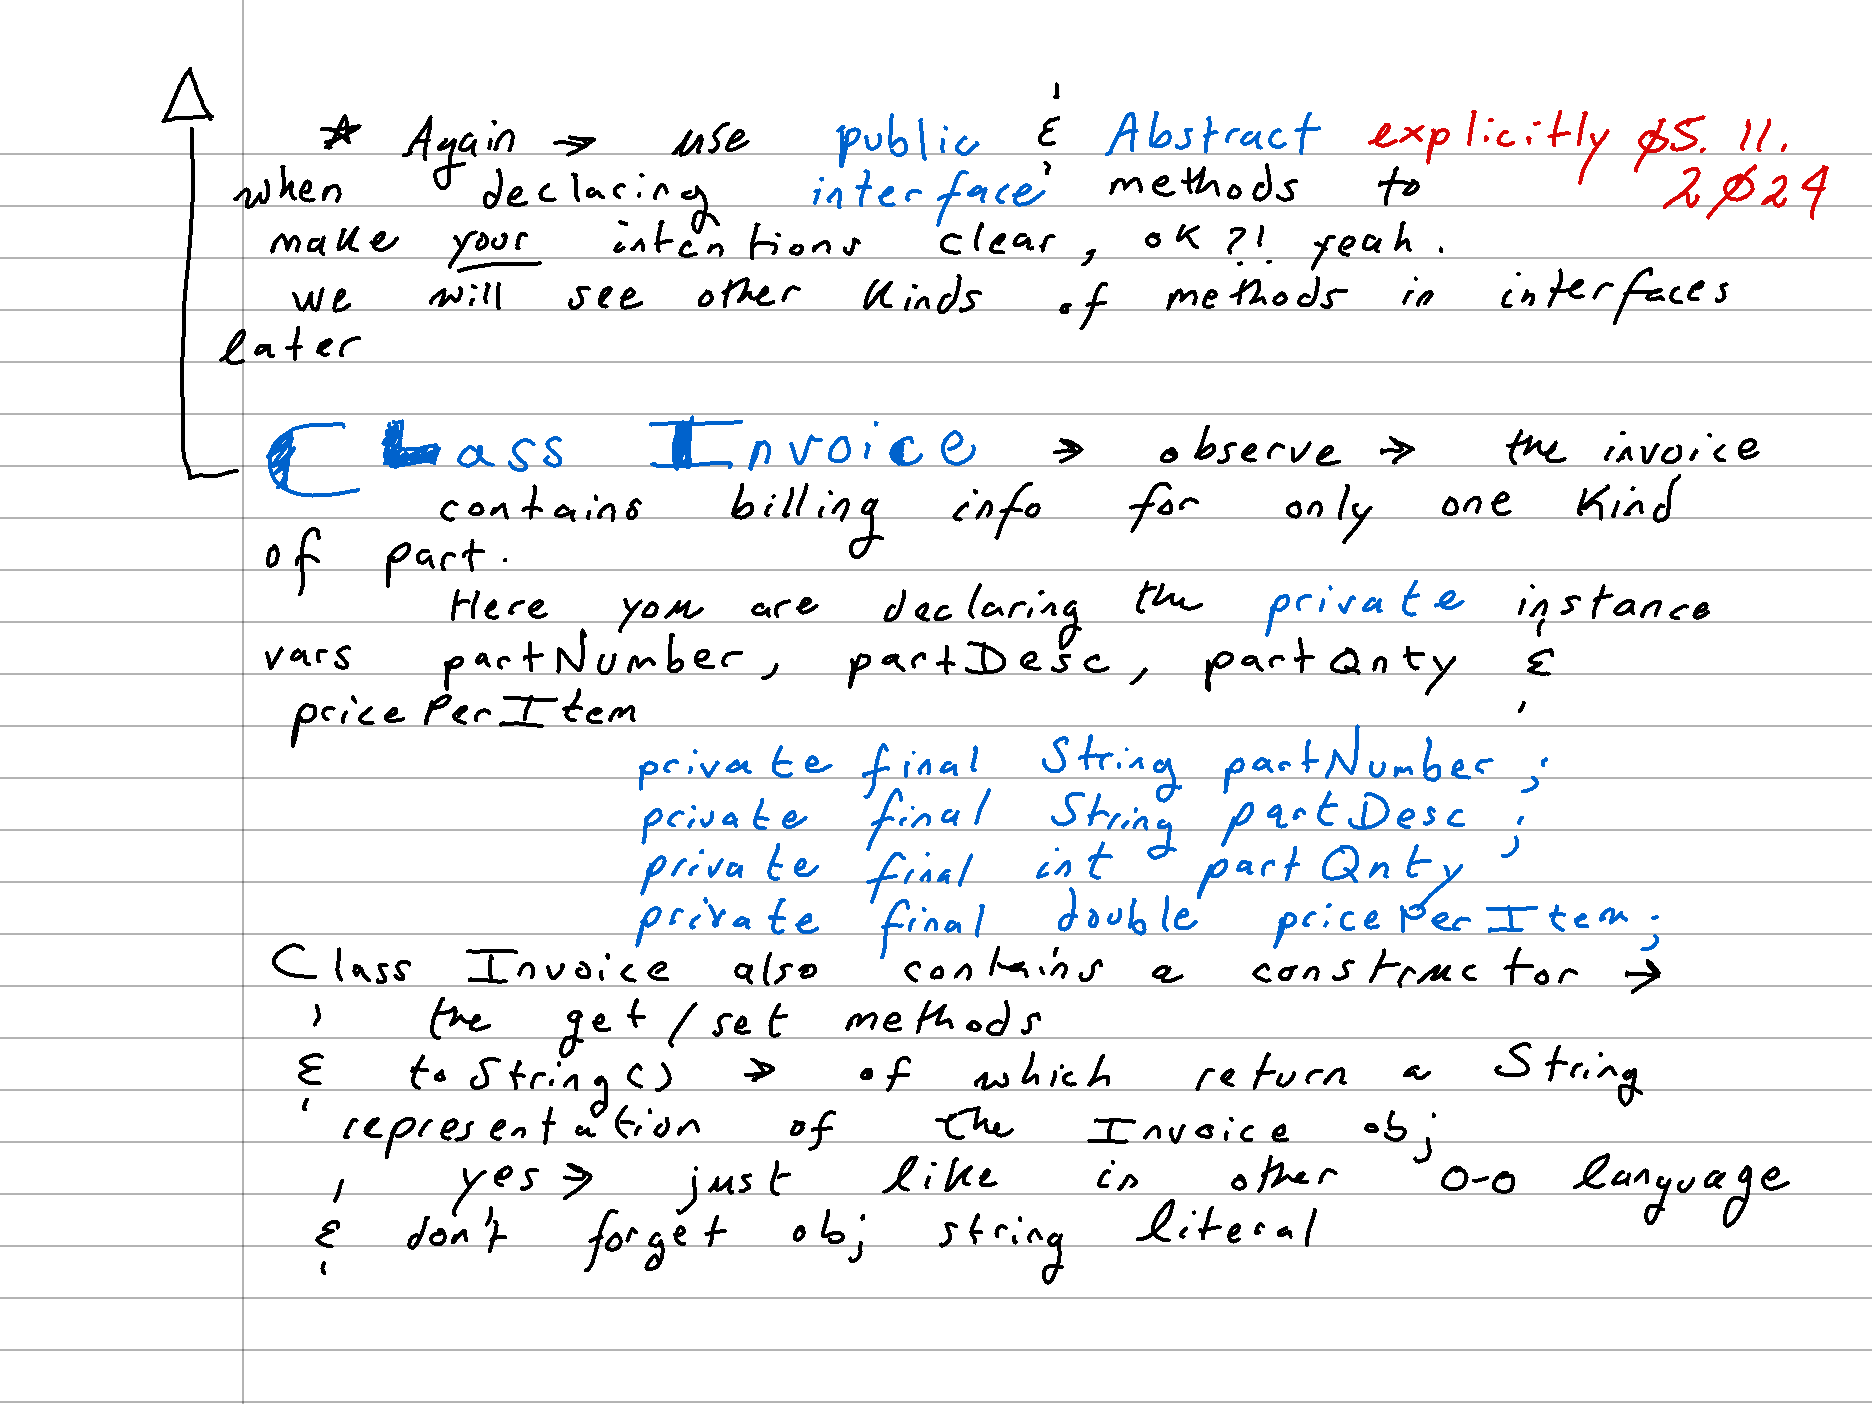 * Again → use public & Abstract explicitly 05.11.
when declaring interface methods to 2024
make your intentions clear, ok?! yeah.
we will see other kinds of methods in interfaces
later
Class Invoice → observe → the invoice
contains billing info for only one kind
of part.
Here you are declaring the private instance
vars partNumber, partDesc, partQnty &
pricePerItem
private final String partNumber;
private final String partDesc;
private final int partQnty
private final double pricePerItem;
Class Invoice also contains a constructor →
the get/set methods
& toString() → of which return a String
representation of the Invoice obj
yes → just like in other O-O language
& don't forget obj string literal